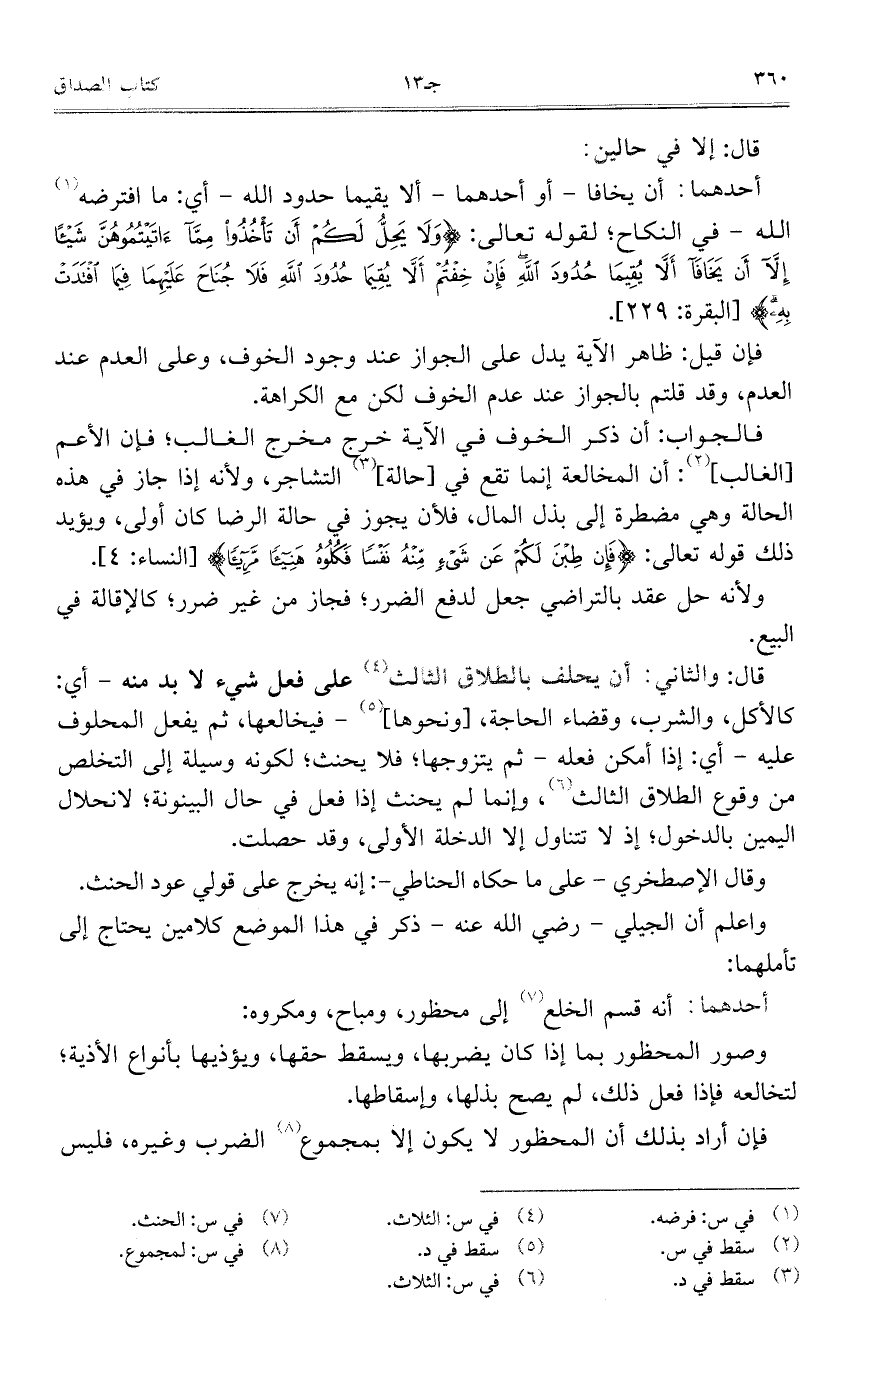 ٣٦٠ جـ١٣ كتاب الصداق
قال: إلا في حالين:
أحدهما: أن يخافا – أو أحدهما – ألا يقيما حدود الله – أي: ما افترضه(١)
الله – في النكاح؛ لقوله تعالى: ﴿وَلَا يَحِلُّ لَكُمْ أَن تَأْخُذُوا۟ مِمَّآ ءَاتَيْتُمُوهُنَّ شَيْـًٔا
إِلَّآ أَن يَخَافَآ أَلَّا يُقِيمَا حُدُودَ ٱللَّهِ ۖ فَإِنْ خِفْتُمْ أَلَّا يُقِيمَا حُدُودَ ٱللَّهِ فَلَا جُنَاحَ عَلَيْهِمَا فِيمَا ٱفْتَدَتْ
بِهِۦ ۗ﴾ [البقرة: ٢٢٩].
فإن قيل: ظاهر الآية يدل على الجواز عند وجود الخوف، وعلى العدم عند
العدم، وقد قلتم بالجواز عند عدم الخوف لكن مع الكراهة.
فالجواب: أن ذكر الخوف في الآية خرج مخرج الغالب؛ فإن الأعم
[الغالب](٢): أن المخالعة إنما تقع في [حالة](٣) التشاجر، ولأنه إذا جاز في هذه
الحالة وهي مضطرة إلى بذل المال، فلأن يجوز في حالة الرضا كان أولى، ويؤيد
ذلك قوله تعالى: ﴿فَإِن طِبْنَ لَكُمْ عَن شَىْءٍ مِّنْهُ نَفْسًا فَكُلُوهُ هَنِيٓـًٔا مَّرِيٓـًٔا﴾ [النساء: ٤].
ولأنه حل عقد بالتراضي جعل لدفع الضرر؛ فجاز من غير ضرر؛ كالإقالة في
البيع.
قال: والثاني: أن يحلف بالطلاق الثالث(٤) على فعل شيء لا بد منه – أي:
كالأكل، والشرب، وقضاء الحاجة، [ونحوها](٥) – فيخالعها، ثم يفعل المحلوف
عليه – أي: إذا أمكن فعله – ثم يتزوجها؛ فلا يحنث؛ لكونه وسيلة إلى التخلص
من وقوع الطلاق الثالث(٦)، وإنما لم يحنث إذا فعل في حال البينونة؛ لانحلال
اليمين بالدخول؛ إذ لا تتناول إلا الدخلة الأولى، وقد حصلت.
وقال الإصطخري – على ما حكاه الحناطي–: إنه يخرج على قولي عود الحنث.
واعلم أن الجيلي – رضي الله عنه – ذكر في هذا الموضع كلامين يحتاج إلى
تأملهما:
أحدهما: أنه قسم الخلع(٧) إلى محظور، ومباح، ومكروه:
وصور المحظور بما إذا كان يضربها، ويسقط حقها، ويؤذيها بأنواع الأذية؛
لتخالعه فإذا فعل ذلك، لم يصح بذلها، وإسقاطها.
فإن أراد بذلك أن المحظور لا يكون إلا بمجموع(٨) الضرب وغيره، فليس
(١) في س: فرضه.
(٢) سقط في س.
(٣) سقط في د.
(٤) في س: الثلاث.
(٥) سقط في د.
(٦) في س: الثلاث.
(٧) في س: الحنث.
(٨) في س: لمجموع.